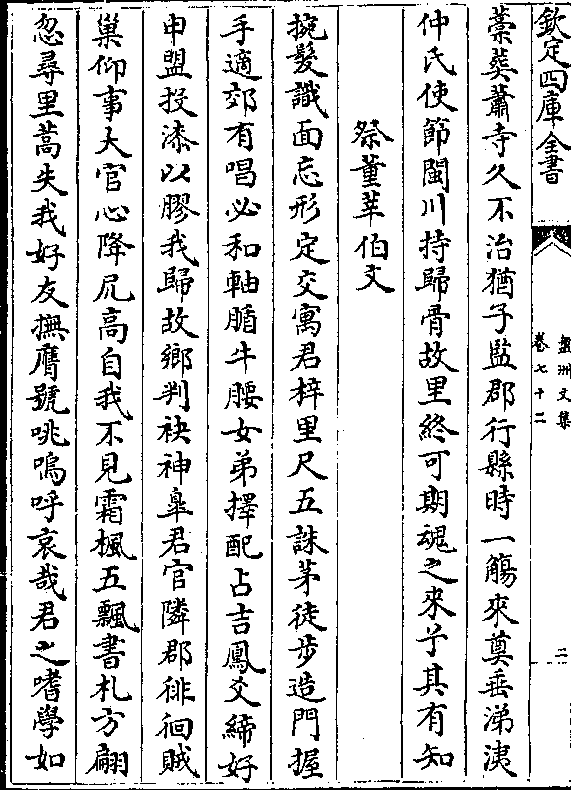 欽定四庫全書
盤洲文集
卷七十二
二
藁葬蕭寺久不治猶子監郡行縣時一觴來奠垂涕洟
仲氏使節閩川持歸骨故里終可期魂之來兮其有知
祭董莘伯文
捥髮識面忘形定交寓君梓里尺五誅茅徒步造門握
手適郊有唱必和軸腯牛腰女弟擇配占吉鳳爻締好
申盟投漆以膠我歸故鄉判袂神臯君官隣郡徘徊賊
巢仰事大官心降尻高自我不見霜楓五飄書札方翩
忽尋里蒿失我好友撫膺號咷嗚呼哀哉君之嗜學如